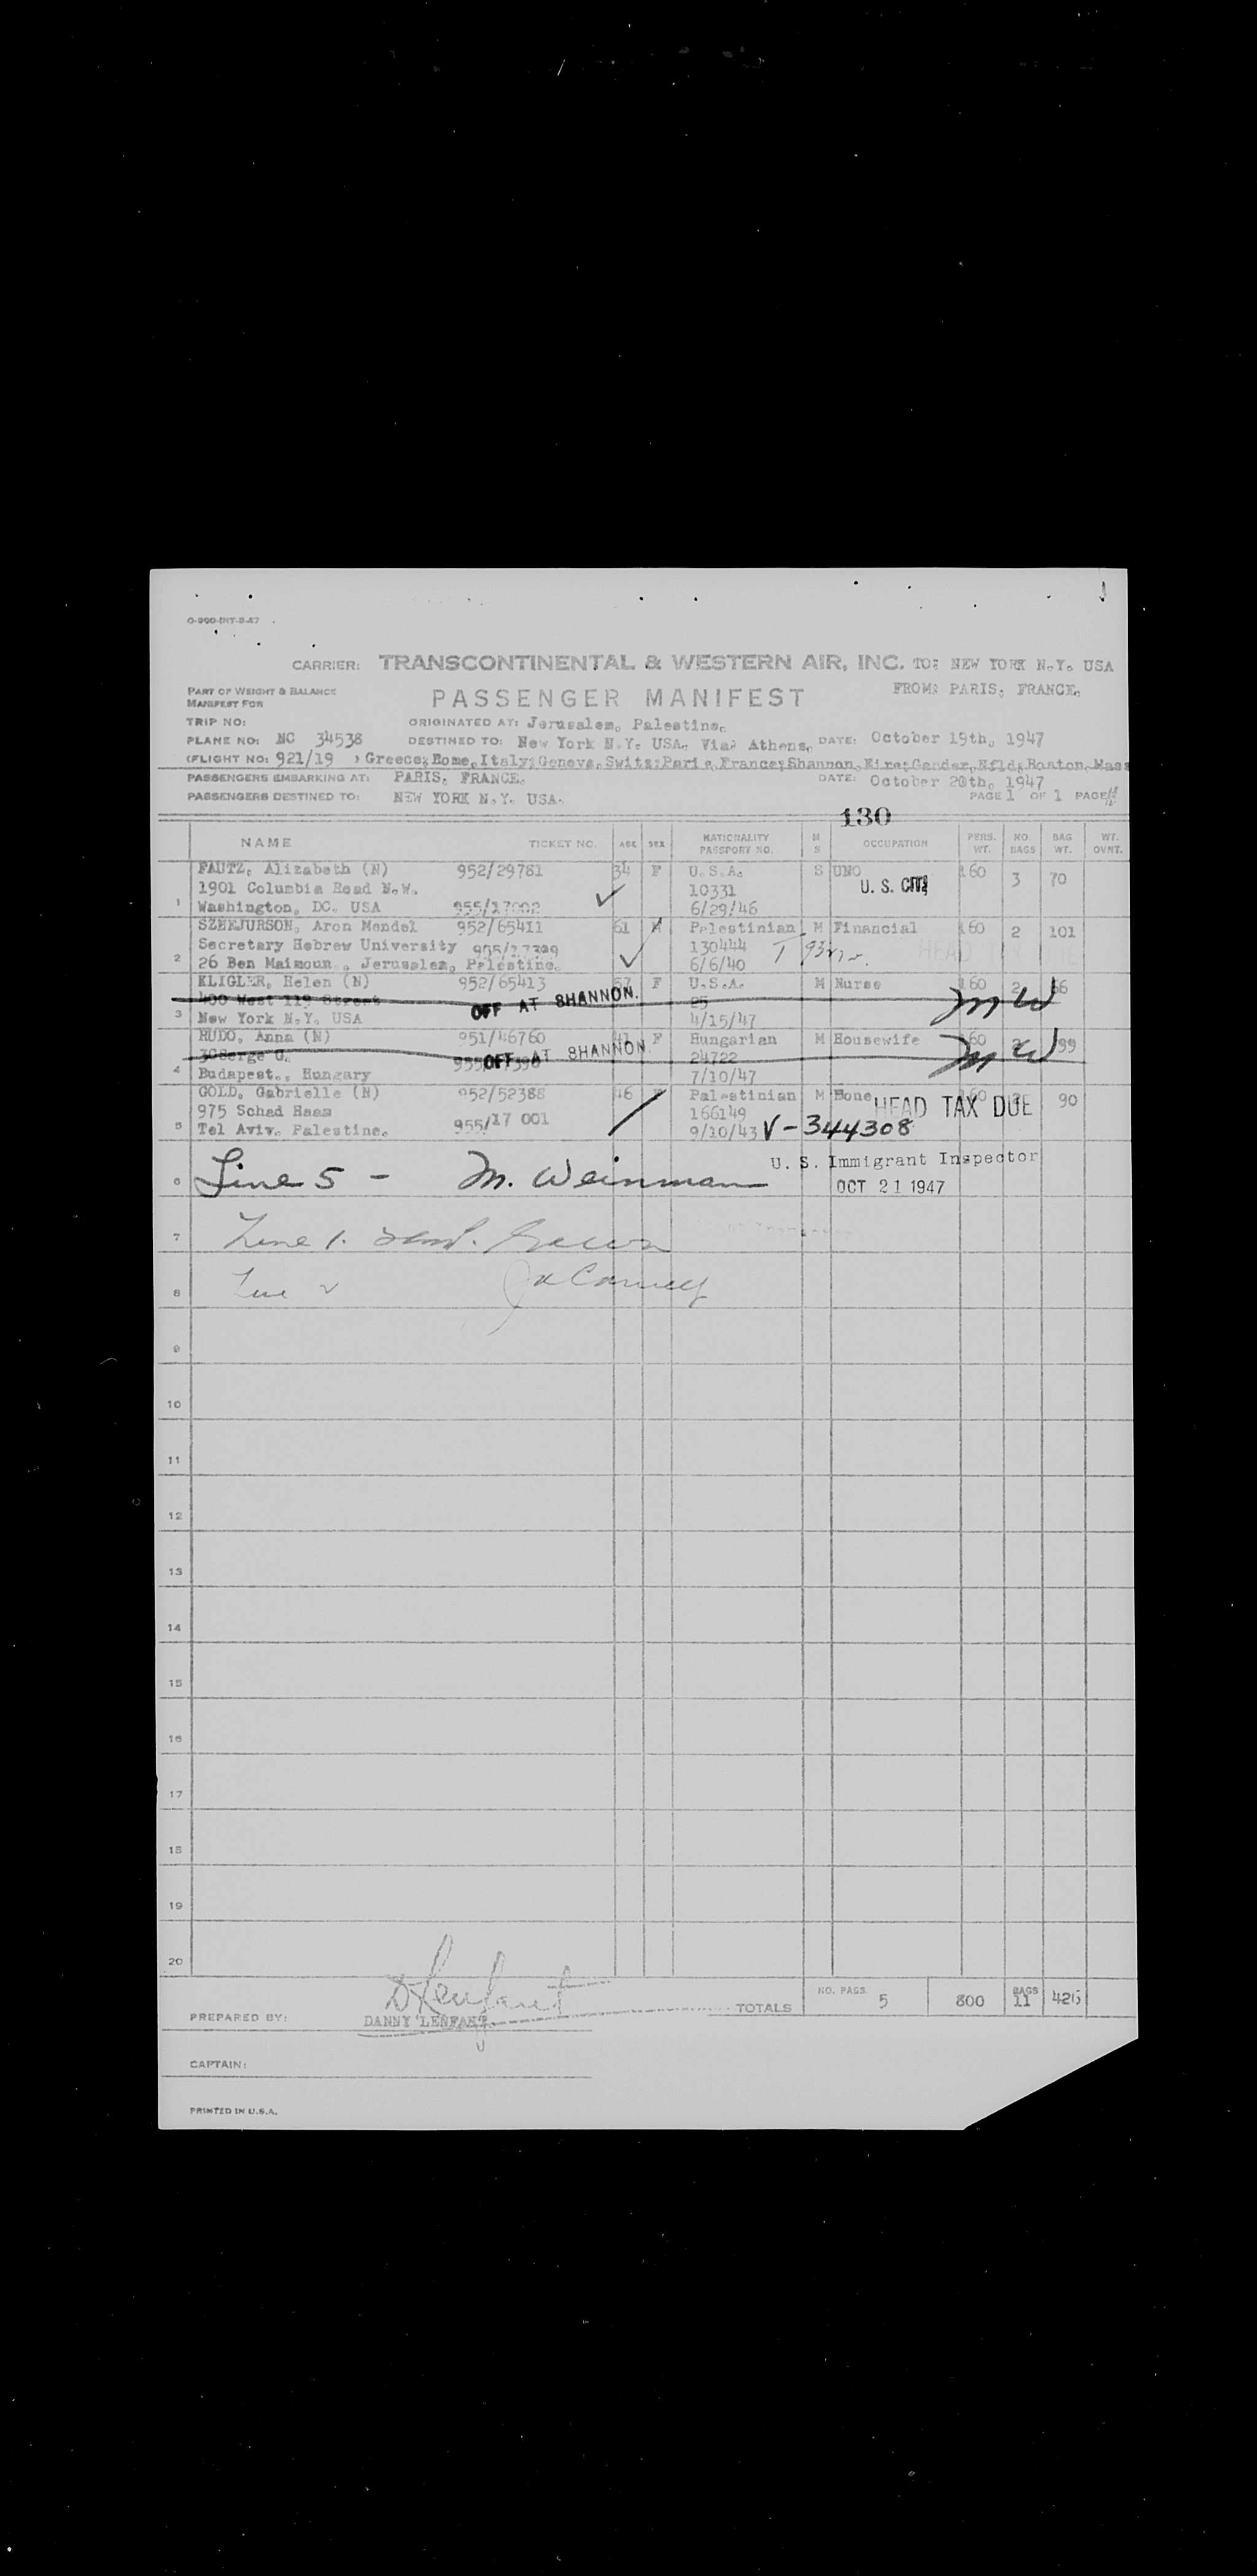 O-900-INT-8-47
CARRIER: TRANSCONTINENTAL & WESTERN AIR, INC. TO: NEW YORK N.Y. USA
PART OF WEIGHT & BALANCE
MANIFEST FOR
PASSENGER MANIFEST
FROM: PARIS, FRANCE.
TRIP NO:
ORIGINATED AT: Jerusalem, Palestine.
PLANE NO: NC 34538
DESTINED TO: New York N.Y. USA. Via: Athens, DATE: October 19th, 1947
(FLIGHT NO: 921/19 ) Greece; Rome, Italy; Geneva, Switz; Paris, France; Shannon, Eire; Gander, Nfld; Boston, Mass
PASSENGERS EMBARKING AT: PARIS, FRANCE. DATE: October 20th, 1947
PASSENGERS DESTINED TO: NEW YORK N.Y. USA. PAGE 1 OF 1 PAGE
130
NAME TICKET NO. AGE SEX NATIONALITY PASSPORT NO. M S OCCUPATION PERS. WT. NO. BAGS BAG WT. WT. OVNT.
1 FAUTZ, Alizabeth (N) 952/29781 34 F U.S.A. S UNO 160 3 70
1901 Columbia Road N.W. 10331 U. S. CIT
Washington, DC. USA 955/17002 6/29/46
2 Aron Mendel 952/65411 61 M Palestinian M Financial 160 2 101
Secretary Hebrew University 130444
26 Ben Maimoun., Jerusalem, Palestine. 6/6/40
HEAD
3 KLIGLER, Helen (N) 952/65413 F U.S.A. M Nurse 160 2 66
400 West 118 Street OFF AT SHANNON. 25 MW
New York N.Y. USA 4/15/47
4 RUDO, Anna (N) 951/46760 F Hungarian M Housewife 160 2 99
OFF AT SHANNON 24722 MW
Budapest., Hungary 7/10/47
5 GOLD, Gabrielle (N) 952/52388 46 Palestinian M None 90
975 Schad Haam 166149 HEAD TAX DUE
Tel Aviv. Palestine. 955/17 001 9/10/43 V-344308
U. S. Immigrant Inspector
6 Line 5 - M. Weinman OCT 21 1947
7 Line 1.
8 Line 2
9
10
11
12
13
14
15
16
17
18
19
20
DLenfant
PREPARED BY: DANNY LENFANT. TOTALS NO. PASS. 5 800 BAGS 11 426
CAPTAIN:
PRINTED IN U.S.A.